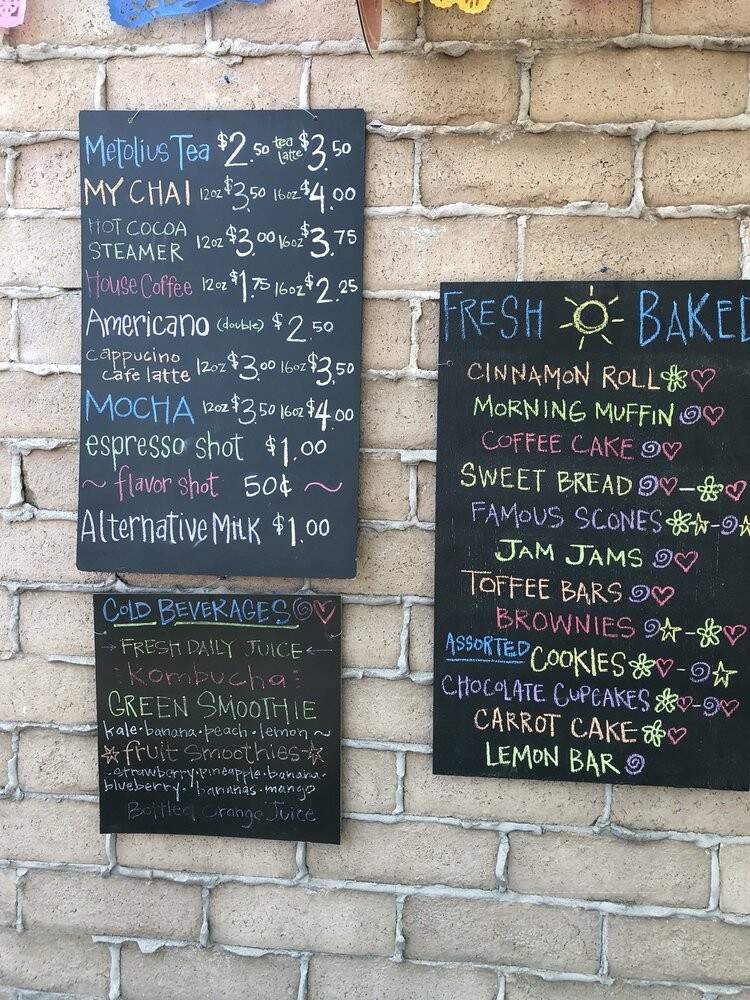 Metolius Tea $2.50 tea latte $3.50
MY CHAI 12oz $3.50 16oz $4.00
HOT COCOA
STEAMER 12oz $3.00 16oz $3.75
House Coffee 12oz $1.75 16oz $2.25
Americano (double) $2.50
cappucino
cafe latte 12oz $3.00 16oz $3.50
MOCHA 12oz $3.50 16oz $4.00
espresso shot $1.00
~ flavor shot 50¢ ~
Alternative Milk $1.00
COLD BEVERAGES
FRESH DAILY JUICE
Kombucha
GREEN SMOOTHIE
kale·banana·peach·lemon~
fruit Smoothies
·strawberry·pineapple·banana·
blueberry·bananas·mango
Bottled Orange Juice
FRESH BAKED
CINNAMON ROLL
MORNING MUFFIN
COFFEE CAKE
SWEET BREAD
FAMOUS SCONES
JAM JAMS
TOFFEE BARS
BROWNIES
ASSORTED COOKIES
CHOCOLATE CUPCAKES
CARROT CAKE
LEMON BAR